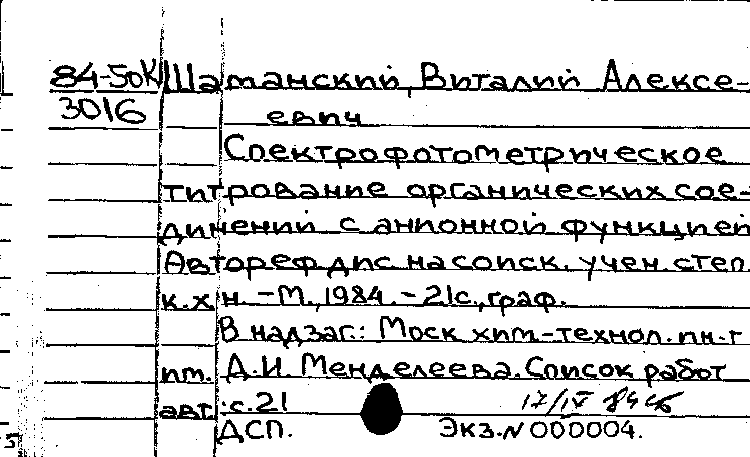 84-50К Шаманский, Виталий Алексе-
3016 евич
Спектрофотометрическое
титрование органических сое-
динений с анионной функцией
Автореф. дис. на соиск. учен. степ.
к.х.н. - М., 1984. - 21с., граф.
В надзаг.: Моск хим-технол. ин-т
им. Д.И. Менделеева. Список работ
авт.: с.21
17/IV 84
ДСП. Экз. N 000004.
5